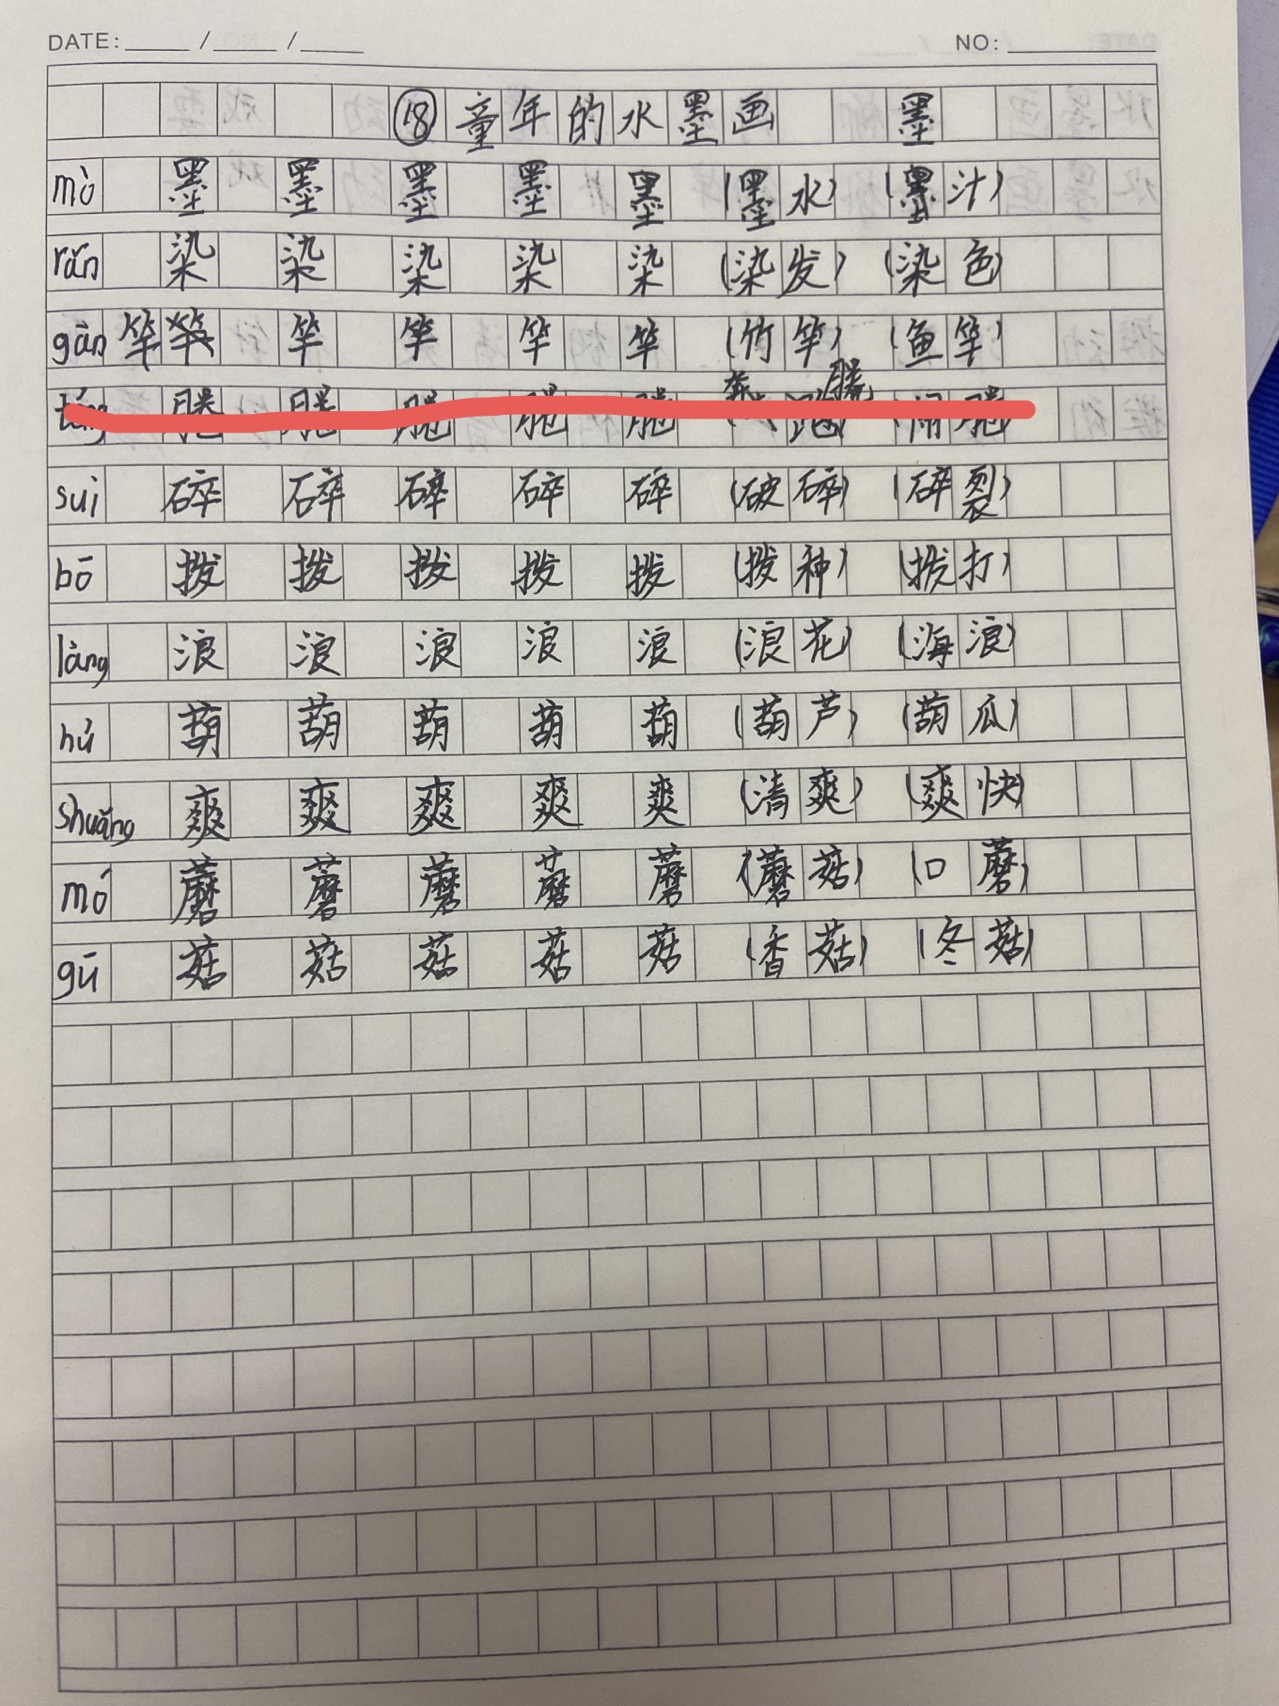 DATE: / /
NO:
⑱ 童年的水墨画 墨
mò 墨 墨 墨 墨 墨 (墨水) (墨汁)
rǎn 染 染 染 染 染 (染发) (染色)
gān 竿 竿 竿 竿 竿 (竹竿) (鱼竿)
suì 碎 碎 碎 碎 碎 (破碎) (碎裂)
bō 拨 拨 拨 拨 拨 (拨种) (拨打)
làng 浪 浪 浪 浪 浪 (浪花) (海浪)
hú 葫 葫 葫 葫 葫 (葫芦) (葫瓜)
shuǎng 爽 爽 爽 爽 爽 (清爽) (爽快)
mó 蘑 蘑 蘑 蘑 蘑 (蘑菇) (口蘑)
gū 菇 菇 菇 菇 菇 (香菇) (冬菇)